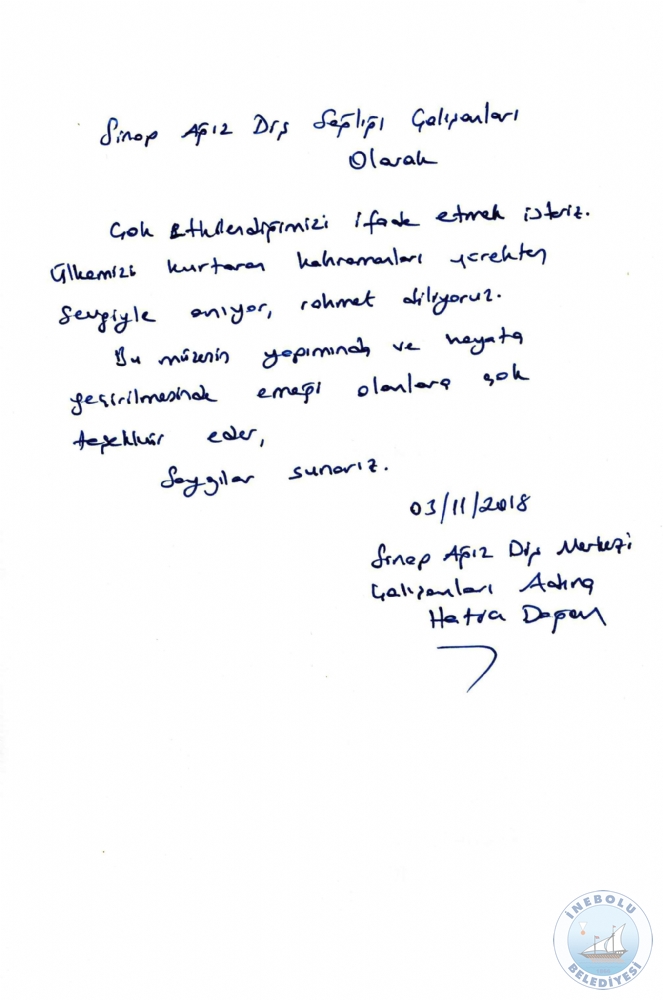 Sinop Ağız Diş Sağlığı Çalışanları
Olarak
Çok Etkilendiğimizi ifade etmek isteriz.
Ülkemizi kurtaran kahramanları yürekten
Sevgiyle anıyor, rahmet diliyoruz.
Bu müzenin yapımında ve hayata
geçirilmesinde emeği olanlara çok
teşekkür eder,
Saygılar sunarız.
03/11/2018
Sinop Ağız Diş Merkezi
Çalışanları Adına
Hatıra Doğan
İNEBOLU
BELEDİYESİ